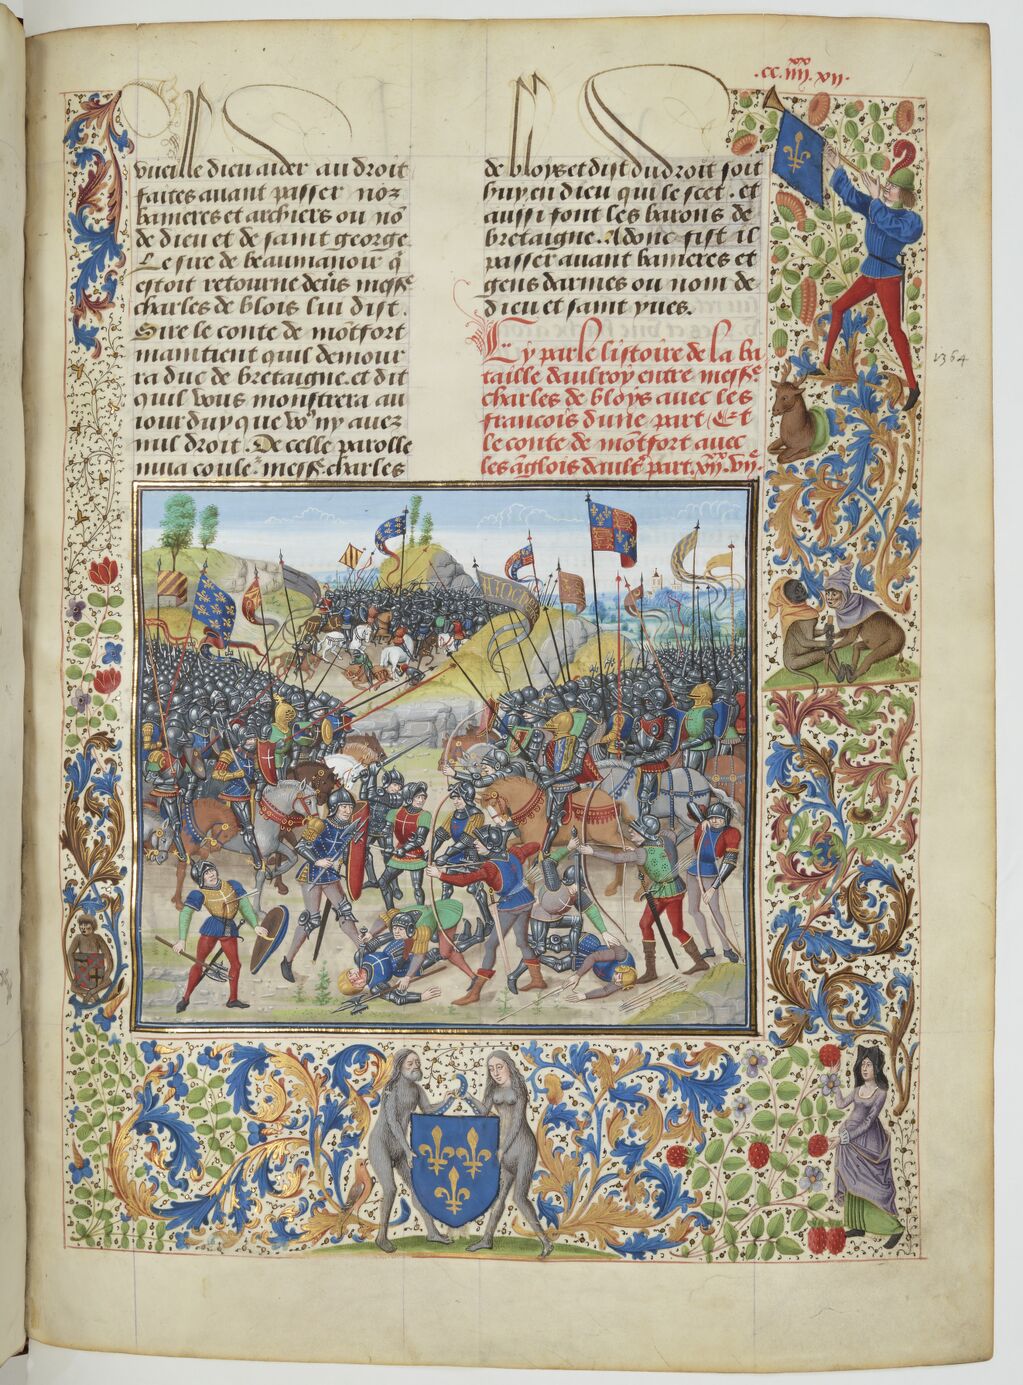 .cc.iiii.xx xvii.
vueille dieu aider au droit
faites auant passer noz
banieres et archiers ou nō
de dieu et de saint george
Le sire de beaumanoir q̄
estoit retourne deũs messͤ
charles de blois lui dist.
Sire le conte de mōtfort
maintient quil demour
ra duc de bretaigne. et dit
quil vous monstrera au
iour duy que vo⁹ ny auez
nul droit. De celle parolle
mua couleͬ messͤ charles
de bloys et dist du droit soit
huy en dieu qui le scet. et
aussi font les barons de
bretaigne. Adonc fist il
passer auant banieres et
gens darmes ou nom de
dieu et saint yues.
Cy parle listoire de la ba
taille daulroy entre messͤ
charles de bloys auec les
francois dune part. Et
le conte de mōtfort auec
les āglois daultͤ part.
1364